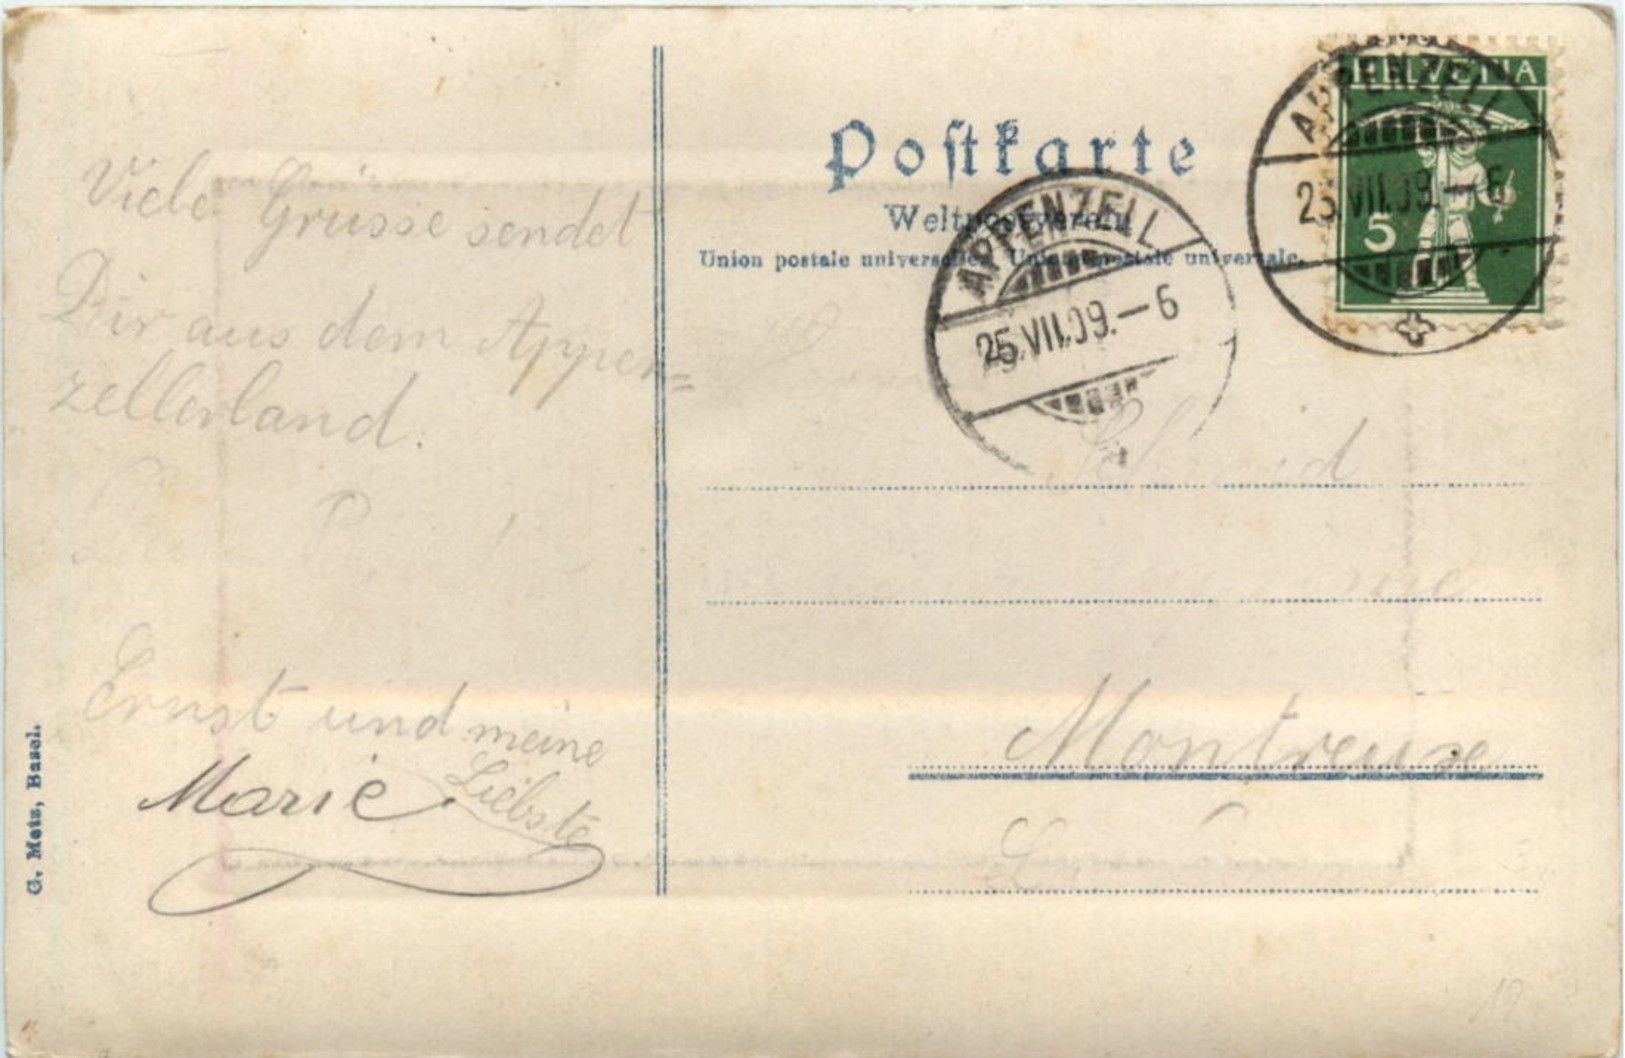 Viele Grüsse sendet
Dir aus dem Appen=
zellerland.
Ernst und meine
Liebste
Marie
G. Metz, Basel.
Postkarte
Weltpostverein
Union postale universelle. Unione postale universale.
APPENZELL
25.VII.09.–6
HELVETIA
5
APPENZELL
25.VII.09.–6
Schmid
Montreux